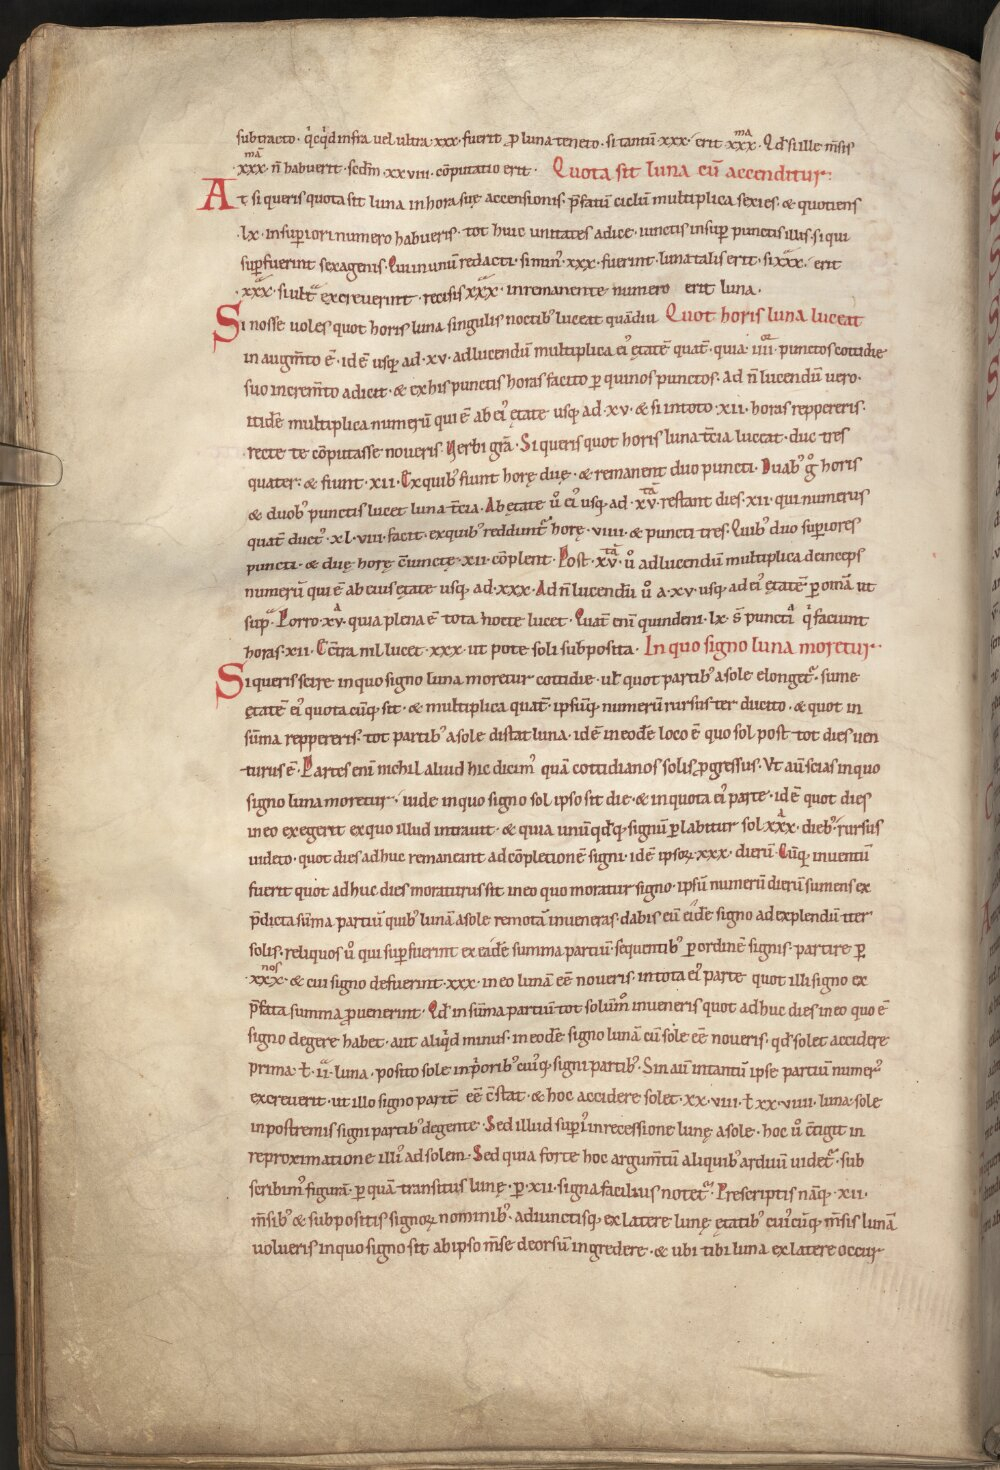 subtracto· q̇cq̇d infra uel ultra ·xxx· fuerit ꝓ luna teneto· si tantū ·xxx· erit xxx.ᵐᵃ Qd̄ si ille m̄sis
·xxx·ᵐᵃ n̄ habuerit· scdm̄ ·xxviii· cōputatio erit· Quota sit luna cū accenditur·
At si queris quota sit luna in hora suę accensionis· p̄fatū ciclū multiplica sexies· & quotiens
·lx· in supiori numero habueris· tot huic unitates adice· iunctis insup punctis illis· si qui
supfuerint sexagenis· Qui in unū redacti· si min᾽ ·xxx· fuerint· luna talis erit· si xxx· erit
·xxx· si ult̄ᵃ excreuerint· recisis xxx· in remanente numero erit luna·
Si nosse uoles quot horis luna singulis noctib᾽ luceat quādiu Quot horis luna luceat
in augm̄to ē· id ē usq; ad ·xv· ad lucendū multiplica ei᾽ ętatē quat̄· quia ·iiii·ᵒʳ punctos cottidie
suo increm̄to adicit· & ex his punctis horas facito ꝑ quinos punctos· Ad n̄ lucendū uero·
itidē multiplica numerū qui ē ab ei᾽ ętate usq; ad ·xv· & si in toto ·xii· horas reppereris·
recte te cōputasse noueris· Verbi grā· Si queris quot horis luna t̄cia luceat· duc tres
quater· & fiunt ·xii· Ex quib᾽ fiunt horę duę· & remanent duo puncti· Duab᾽ g̊ horis
& duob᾽ punctis lucet luna t̄cia· Ab ętate ů ei᾽ usq; ad ·xv·ᵗᵃ̄ restant dies ·xii· qui numerus
quat̄ duct᾽ ·xl·viii· facit· ex quib᾽ reddunt᷑ horę ·viiii· & puncti tres· Quib᾽ duo supiores
puncti· & duę horę c̄iunctę ·xii· cōplent· Post ·xv·ᵗᵃ̄ ů ad lucendū multiplica deinceps
numerū qui ē ab eius ętate usq; ad ·xxx· Ad n̄ lucendū ů a ·xv· usq; ad ei᾽ ętatē ꝑ omā ut
sup̄ᵃ· Porro ·xv·ᵃ quia plena ē tota nocte lucet· Quat̄ enī quindeni ·lx· s̄ puncti q̇ faciunt
horas ·xii· Cc̄tra nil lucet ·xxx· ut pote soli subposita· In quo signo luna moretur·
Si queris scire in quo signo luna moretur cottidie· ul̄ quot partib᾽ a sole elonget᷑· sume
ętatē ei᾽ quota cūq; sit· & multiplica quat̄· ipsūq; numerū rursus ter ducito· & quot in
sūma reppereris· tot partib᾽ a sole distat luna· id ē in eodē loco ē quo sol post tot dies uen
turus ē· Partes enī nichil aliud hic dicim᾽ quā cottidianos solis ꝓgressus· Vt aū scias in quo
signo luna moretur· uide in quo signo sol ipso sit die· & in quota ei᾽ parte· id ē quot dies
in eo exegerit ex quo illud intrauit· & quia unūqd̄q; signū ꝑlabitur sol ·xxx· dieb᾽· rursus
uideto· quot dies adhuc remaneant ad cōpletionē signi· id ē ipsoꝝ ·xxx· dierū· Cūq; inuentū
fuerit quot adhuc dies moraturus sit in eo quo moratur signo· ipsū numerū dierū sumens ex
p̄dicta sūma partiū quib᾽ lunā a sole remotā inueneras· dabis eū eidē signo ad explendū iter
solis· reliquos ů qui supfuerint ex eadē summa partiū· sequentib᾽ ꝑ ordinē signis· partire ꝑ
·xxx·ⁿᵒˢ & cui signo defuerint ·xxx· in eo lunā eē noueris· in tota ei᾽ parte quot illi signo ex
p̄fata summa ꝓuenerint· Qd̄ in sūma partiū tot solūm̊ inueneris quot adhuc dies in eo quo ē
signo degere habet· aut aliq̇d minus· in eodē signo lunā cū sole eē noueris· qd̄ solet accidere
prima· ł ·ii·ᵃ luna· posito sole in p̄orib᾽ cui᾽q; signi partib᾽· Sin aū in tantū ipse partiū numer᾽
excreuerit· ut illo signo parit̄ eē c̄stat· & hoc accidere solet ·xx·viii· ł xx·viiii· luna· sole
in postremis signi partib᾽ degente· Sed illud supi᾽ in recessione lunę a sole· hoc ů c̄tigit in
reproximatione illi᾽ ad solem· Sed quia forte hoc argum̄tū aliquib᾽ arduū uidet᷑· sub
scribim᾽ figurā· ꝑ quā transitus lunę· ꝑ ·xii· signa facilius notet᷑· Prescriptis nāq; ·xii·
m̄sib᾽ & subpositis signoꝝ nominib᾽· adiunctisq; ex latere lunę ętatib᾽ cui᾽cūq; m̄sis lunā
uolueris in quo signo sit ab ipso m̄se deorsū ingredere· & ubi tibi luna ex latere occur